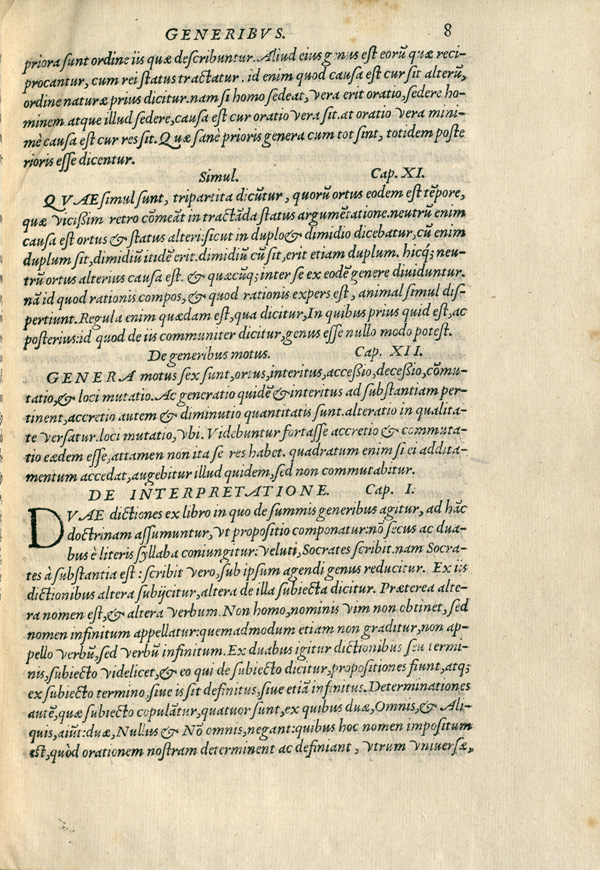 GENERIBVS. 8
priora sunt ordine iis quæ describuntur. Aliud eius genus est eorū quæ reci-
procantur, cum rei status tractatur. id enim quod causa est cur sit alterū,
ordine naturæ prius dicitur. nam si homo sedeat, vera erit oratio, sedere ho-
minem. atque illud sedere, causa est cur oratio vera sit. at oratio vera mini-
mè causa est cur res sit. Quæ sanè prioris genera cum tot sint, totidem poste
rioris esse dicentur.
Simul. Cap. XI.
QVAE simul sunt, tripartita dicūtur, quorū ortus eodem est tēpore,
quæ vicißim retro cōmeāt in tractāda status argumētatione. neutrū enim
causa est ortus & status alteri: sicut in duplo & dimidio dicebatur, cū enim
duplum sit, dimidiū itidē erit. dimidiū cū sit, erit etiam duplum. hicq; neu-
trū ortus alterius causa est. & quæcūq; inter se ex eodē genere diuiduntur.
nā id quod rationis compos, & quod rationis expers est, animal simul dis-
pertiunt. Regula enim quædam est, qua dicitur, In quibus prius quid est, ac
posterius: id quod de iis communiter dicitur, genus esse nullo modo potest.
De generibus motus. Cap. XII.
GENERA motus sex sunt, ortus, interitus, acceßio, deceßio, cōmu-
tatio, & loci mutatio. Ac generatio quidē & interitus ad substantiam per-
tinent, accretio autem & diminutio quantitatis sunt. alteratio in qualita-
te versatur. loci mutatio, vbi. Videbuntur fortasse accretio & commuta-
tio eædem esse, attamen non ita se res habet. quadratum enim si ei addita-
mentum accedat, augebitur illud quidem, sed non commutabitur.
DE INTERPRETATIONE. Cap. I.
DVAE dictiones ex libro in quo de summis generibus agitur, ad hāc
doctrinam assumuntur, vt propositio componatur: nō secus ac dua-
bus è literis syllaba coniungitur: veluti, Socrates scribit. nam Socra-
tes à substantia est: scribit vero, sub ipsum agendi genus reducitur. Ex iis
dictionibus altera subijcitur, altera de illa subiecta dicitur. Præterea alte-
ra nomen est, & altera verbum. Non homo, nominis vim non obtinet, sed
nomen infinitum appellatur: quemadmodum etiam non graditur, non ap-
pello verbū, sed verbū infinitum. Ex duabus igitur dictionibus seu termi-
nis, subiecto videlicet, & eo qui de subiecto dicitur, propositiones fiunt, atq;
ex subiecto termino, siue is sit definitus, siue etiā infinitus. Determinationes
autē, quæ subiecto copulātur, quatuor sunt, ex quibus duæ, Omnis, & Ali-
quis, aiūt: duæ, Nullus & Nō omnis, negant: quibus hoc nomen impositum
est, quòd orationem nostram determinent ac definiant, vtrum vniuersæ,